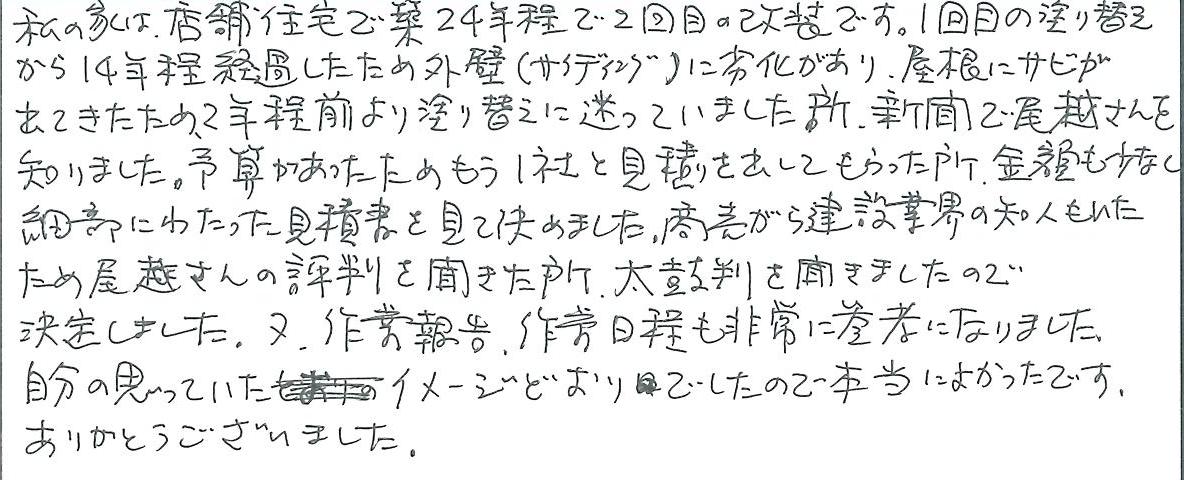 私の家は、店舗住宅で築24年程で2回目の改装です。1回目の塗り替え
から14年程経過したため外壁(サイディング)に劣化があり、屋根にサビが
出てきたため、2年程前より塗り替えに迷っていました所、新聞で尾越さんを
知りました。予算があったためもう1社と見積りを出してもらった所、金額も少なく
細部にわたった見積書を見て決めました。商売がら建設業界の知人もいた
ため尾越さんの評判を聞きた所、太鼓判を聞きましたので
決定しました。又、作業報告、作業日程も非常に参考になりました。
自分の思っていたイメージどおりでしたので本当によかったです。
ありがとうございました。